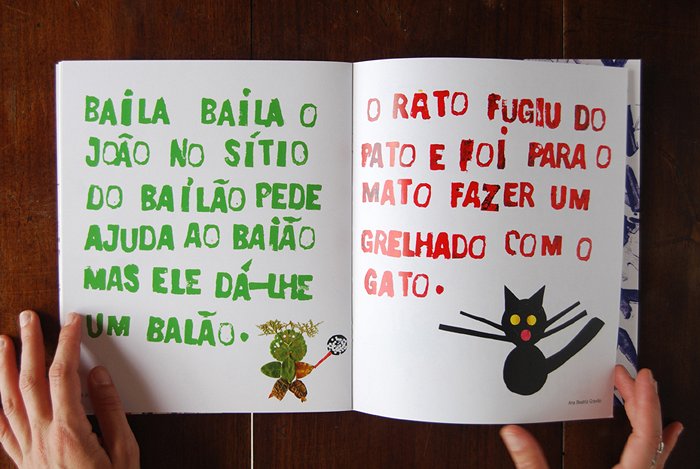 BAILA BAILA O
JOÃO NO SÍTIO
DO BAILÃO PEDE
AJUDA AO BAIÃO
MAS ELE DÁ-LHE
UM BALÃO.
O RATO FUGIU DO
PATO E FOI PARA O
MATO FAZER UM
GRELHADO COM O
GATO.